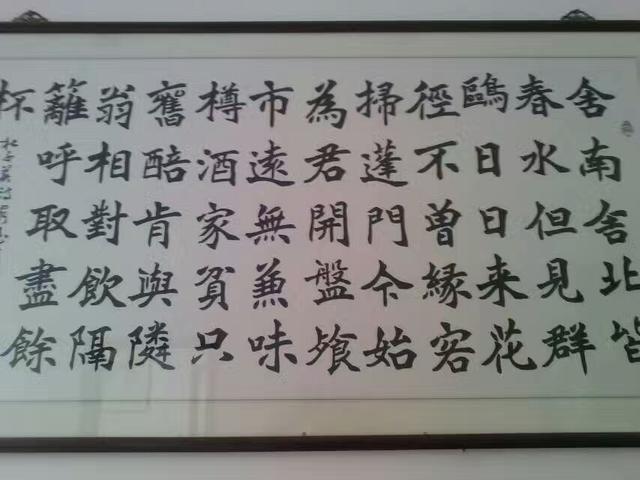 舍南舍北皆
春水但見群
鷗日日来花
徑不曾緣客
掃蓬門今始
為君開盤飧
市遠無兼味
樽酒家貧只
舊醅肯與隣
翁相對飲隔
籬呼取盡餘
杯